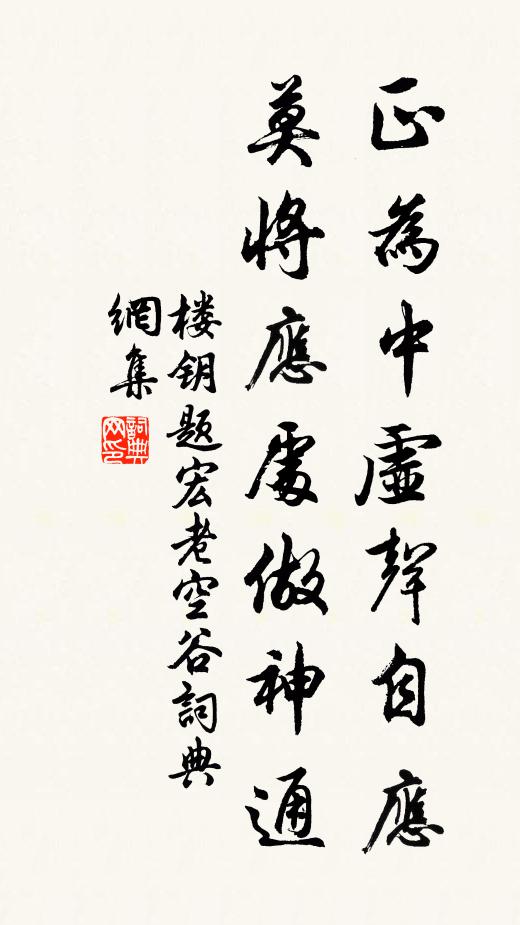 正為中虛聲自應
莫將應處做神通
楼钥题宏老空谷詞典
網集
詞典
网印